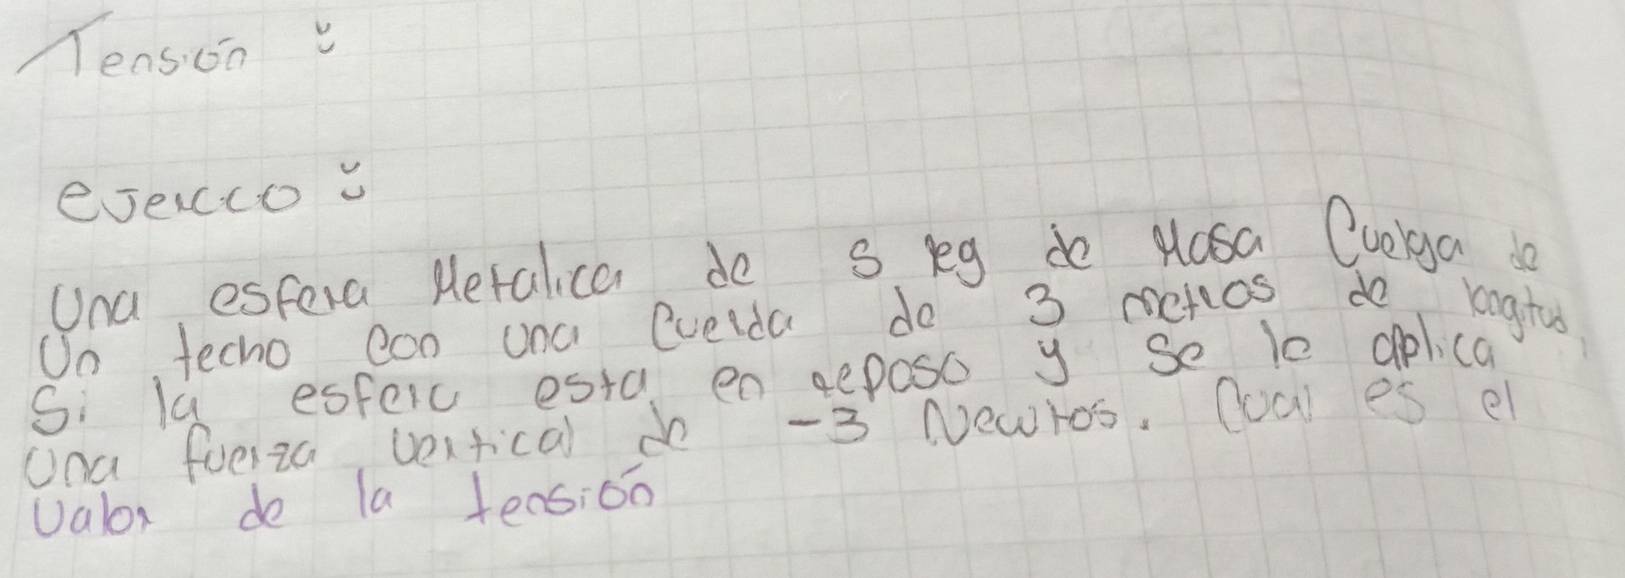 Tensión :
ejercico :
Una esfera Metalica de 5 kg de Masa Cuelga de
Un techo con una Cuerda de 3 metros de longitud,
Si la esfera esta en reposo y se le aplica
Una fuerza vertical de -3 Newtos. Cual es el
Valor de la tensión